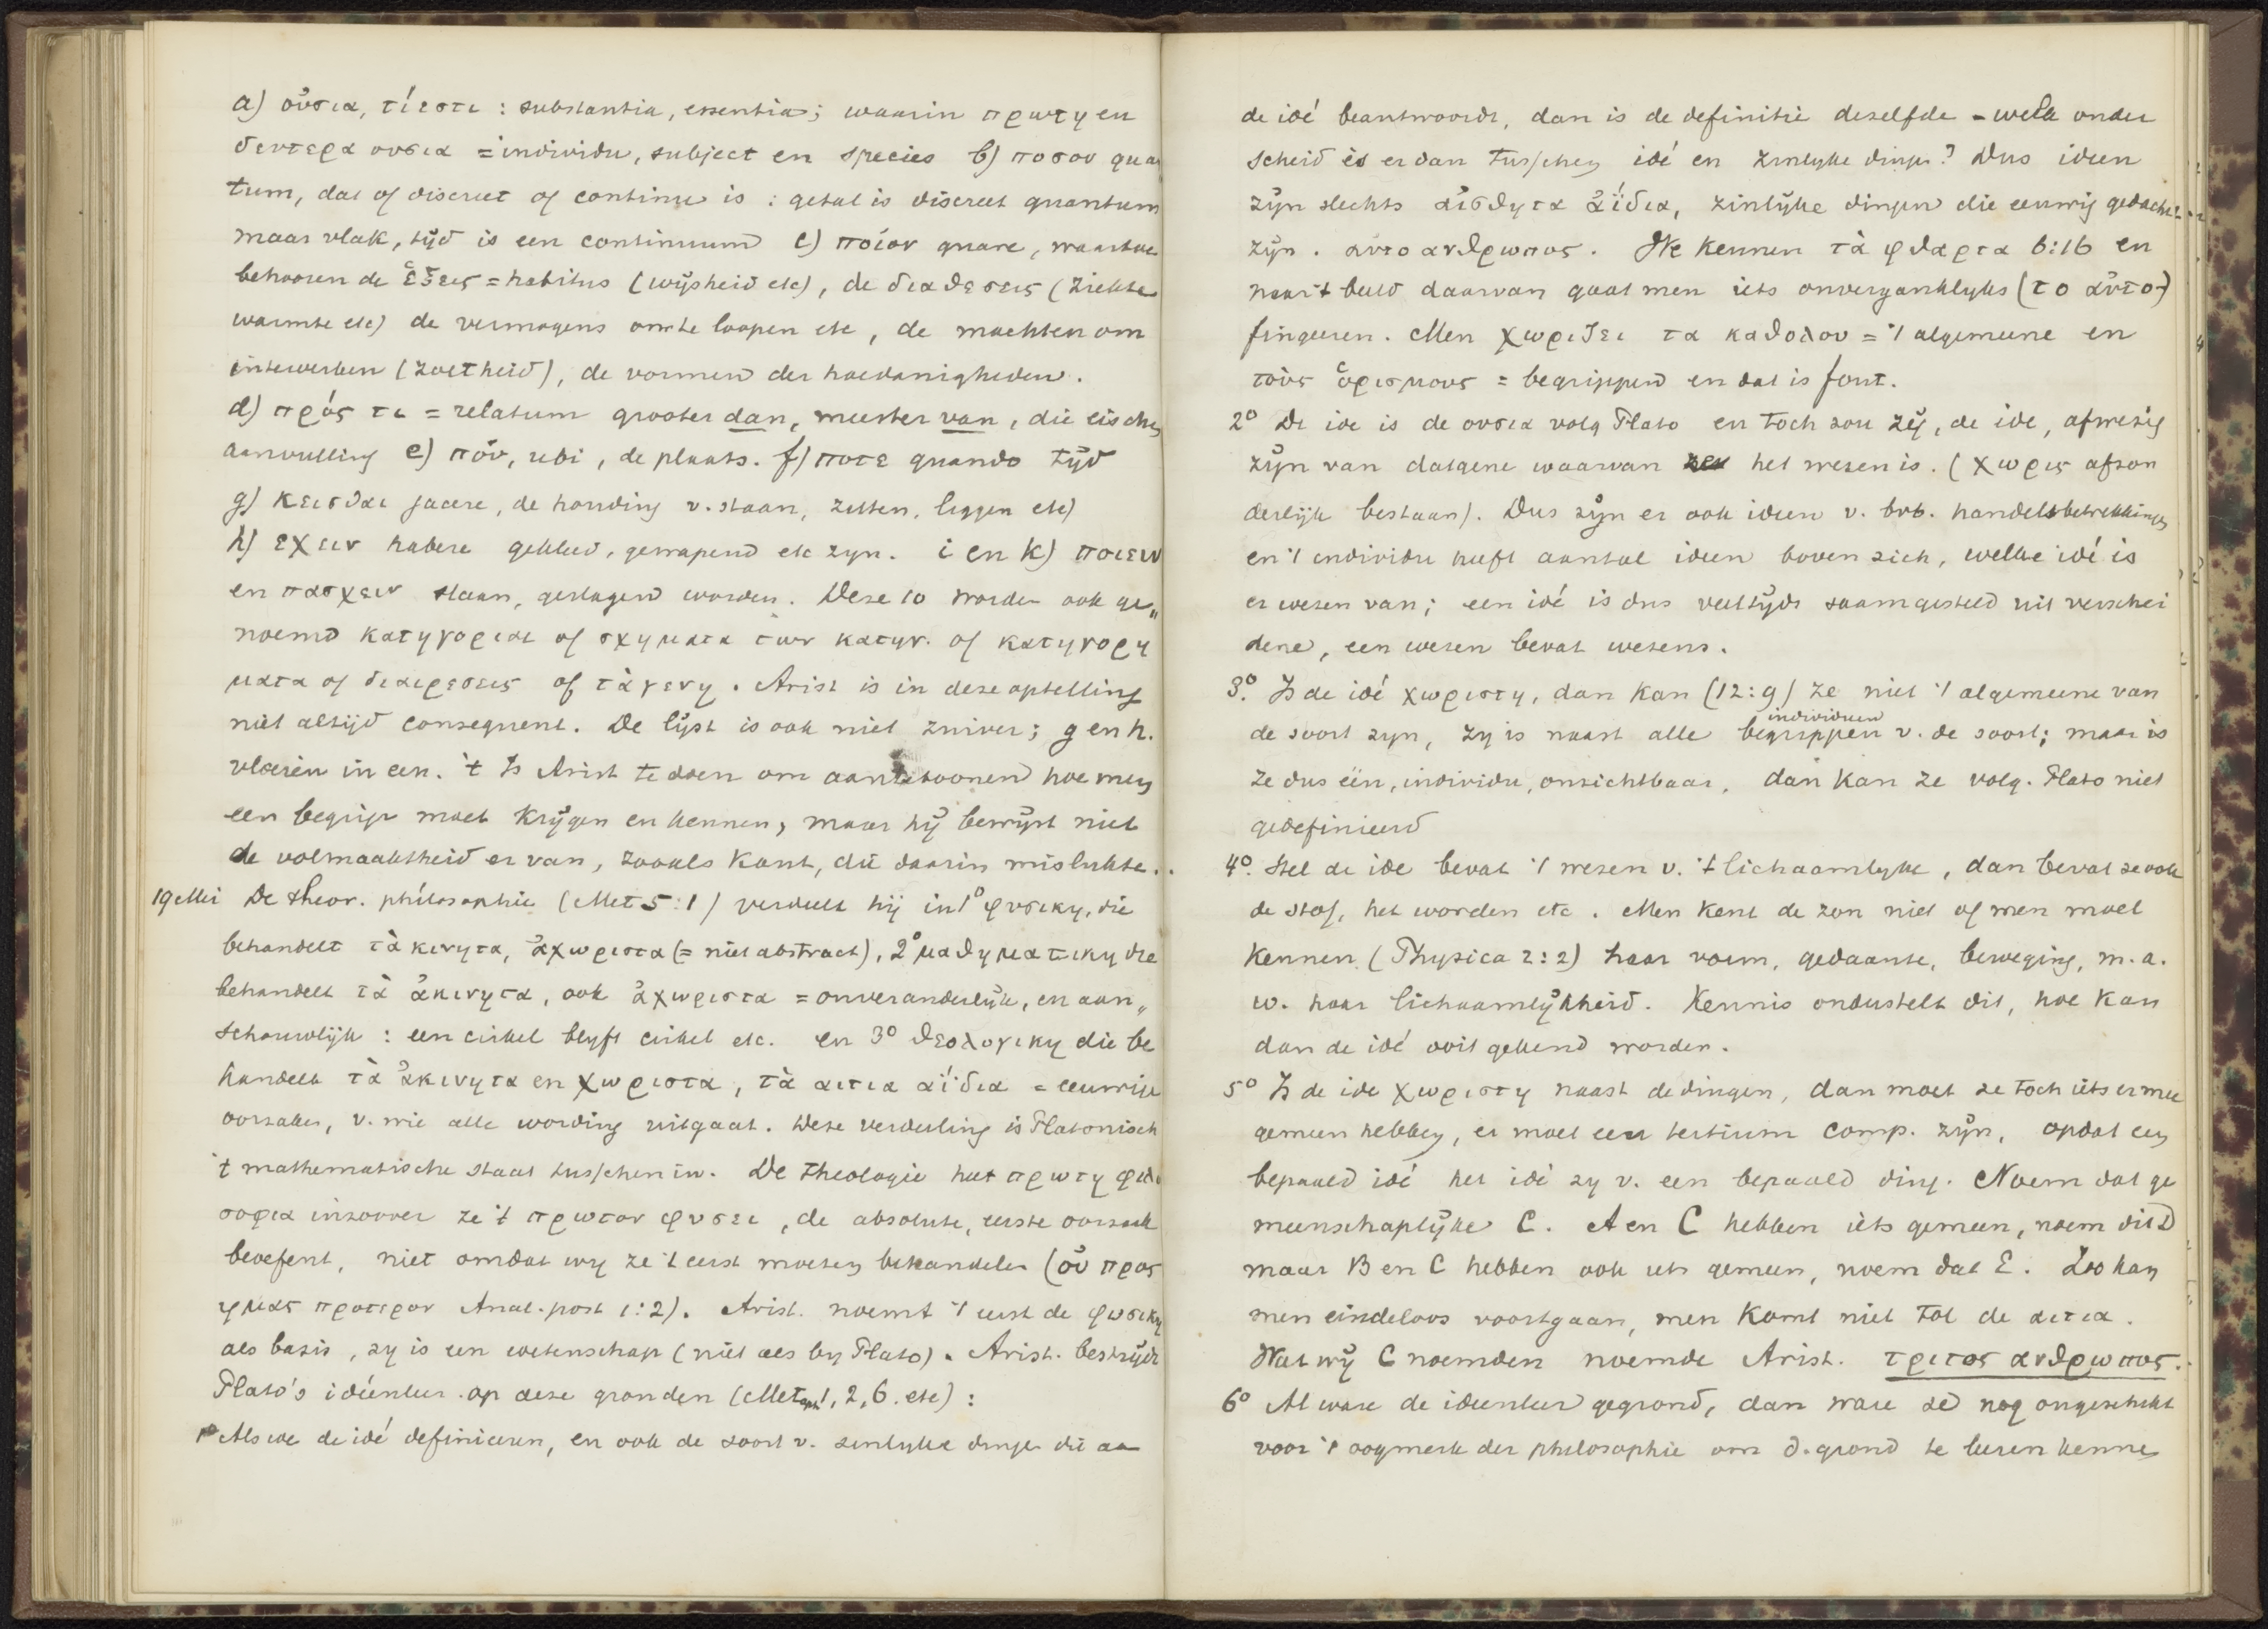 a) οὐσια, τί εστι : substantia, essentia; waarin πρωτη en
δευτερα ουσια = individu, subject en species b) ποσον quan
tum, dat of discreet of continu is : getal is discreet quantum
maar vlak, tijd is een continuum c) ποίον quare, waartoe
behooren de ἕξεις = habitus (wijsheid etc), de διαθεσεις (ziekte
warmte etc) de vermogens om te loopen etc, de machten om
intewerken (zoetheid), de vormen der hoedanigheden.
d) πρός τι = relatum grooter dan, meester van, die eischen
aanvulling e) πόυ, ubi, de plaats. f) ποτε quando tijd
g) κεισθαι jacere, de houding v. staan, zitten, liggen etc)
h) εχειν habere gekleed, gewapend etc zyn. i en k) ποιειν
en πασχειν slaan, geslagen worden. Deze 10 worden ook ge„
noemd κατηγοριαι of σχηματα των κατηγ. of κατηγορη
ματα of διαιρεσεις of τὰ γενη. Arist is in deze optelling
niet altijd consequent. De lijst is ook niet zuiver; g en h.
vloeien in een. 't Is Arist te doen om aantetoonen hoe men
een begrip moet krijgen en kennen, maar hij bewijst niet
de volmaaktheid er van, zooals Kant, die daarin mislukte.
19 Mei De theor. philosophie (Met 5:1) verdeelt hij in 1° φυσικη, die
behandelt τὰ κινητα, ἀχωριστα (= niet abstract), 2° μαθηματικη die
behandelt τὰ ἀκινητα, ook ἀχωριστα = onveranderlijk, en aan„
schouwlijk : een cirkel blyft cirkel etc. en 3° θεολογικη die be
handelt τὰ ἀκινητα en χωριστα, τὰ αιτια αἴδια = eeuwige
oorzaken, v. wie alle wording uitgaat. Deze verdeeling is Platonisch
't mathematische staat tusschen in. De theologie heet πρωτη φιλο
σοφια inzoover ze 't πρωτον φυσει, de absolute, eerste oorzaak
beoefent, niet omdat wy ze 't eerst moeten behandelen (οὐ προς
ημας προτερον Anal. post 1:2). Arist. noemt 't eerst de φυσικη
als basis, zy is een wetenschap (niet als by Plato). Arist. bestrijdt
Plato's ideeënleer op deze gronden (Metaph 1, 2, 6. etc) :
1° Als we de idé definieeren, en ook de soort v. zinlyke dingen die aa
de idé beantwoordt, dan is de definitie dezelfde - welk onder
scheid is er dan tusschen idé en zinlyke dingen? Dus ideen
zijn slechts αἰσθητα ἀΐδια, zinlijke dingen die eeuwig gedacht
zijn. αυτοανθρωπος. We kennen τὰ φθαρτα 6:16 en
naar 't beeld daarvan gaat men iets onverganklyks (το αὐτο-)
fingeeren. Men χωριζει τα καθολου = 't algemeene en
τοὺς ὁρισμους = begrippen en dat is fout.
2° De ide is de ουσια volg Plato en toch zou zij, de ide, afwezig
zijn van datgene waarvan het wezen is. (χωρις afzon
derlijk bestaan). Dus zijn er ook ideen v. bvb. handelsbetrekkingen
en 't individu heeft aantal ideen boven zich, welke idé is
er wezen van; een idé is dus veeltijds saamgesteld uit verschei
dene, een wezen bevat wezens.
3°. Is de idé χωριστη, dan kan (12:9) ze niet 't algemeene van
de soort zyn, zy is naast alle begrippen individuen v. de soort; maar is
ze dus één, individu, onzichtbaar, dan kan ze volg. Plato niet
gedefinieerd
4°. Stel de ide bevat 't wezen v. 't lichaamlyke, dan bevat ze ook
de stof, het worden etc. Men kent de zon niet of men moet
kennen (Physica 2:2) haar vorm, gedaante, beweging, m. a.
w. haar lichaamlijkheid. Kennis onderstelt dit, hoe kan
dan de idé ooit gekend worden.
5° Is de ide χωριστη naast de dingen, dan moet ze toch iets ermee
gemeen hebben, er moet een tertium comp. zijn, opdat een
bepaald idé het idé zy v. een bepaald ding. Noem dat ge
meenschaplijke C. A en C hebben iets gemeen, noem dit D
maar B en C hebben ook iets gemeen, noem dat E. Zoo kan
men eindeloos voortgaan, men komt niet tot de αιτια.
Wat wij C noemden noemde Arist. τριτος ανθρωπος.
6° Al ware de ideenleer gegrond, dan ware ze nog ongeschikt
voor 't oogmerk der philosophie om d. grond te leeren kennen